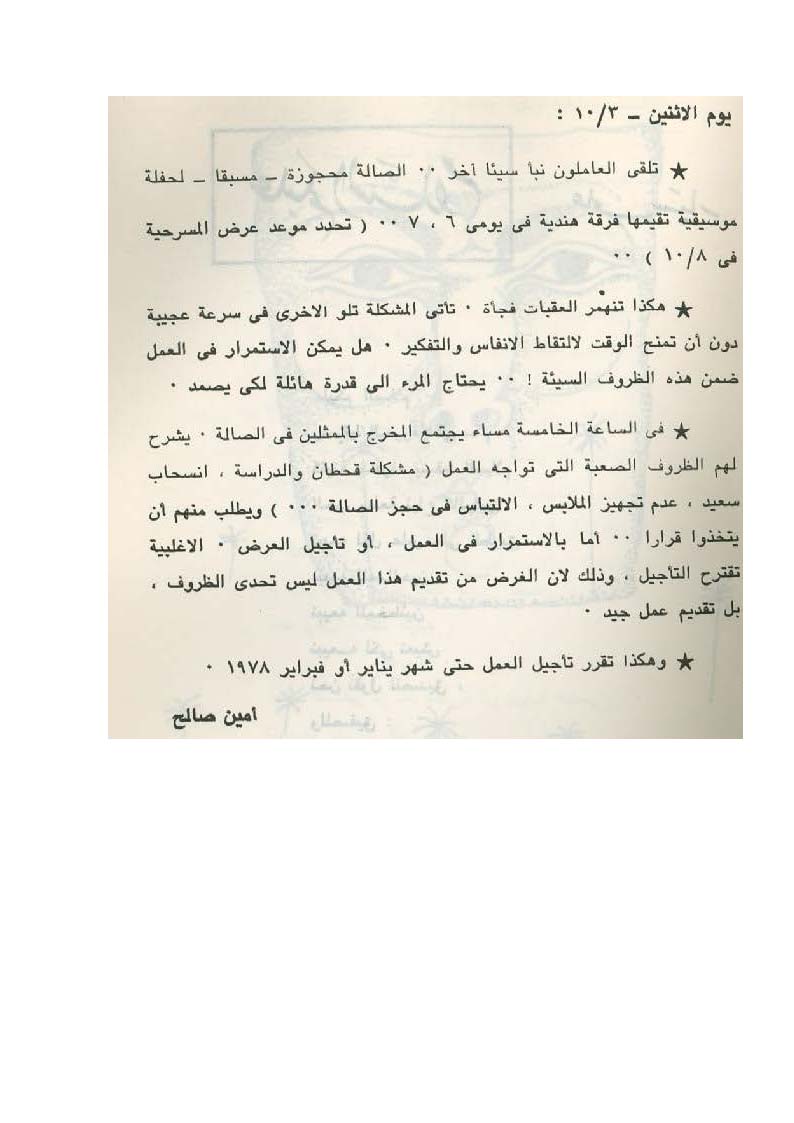 يوم الاثنين ــ ١٠/٣ :
★ تلقى العاملون نبأ سيئا آخر ٠٠ الصالة محجوزة ــ مسبقا ــ لحفلة
موسيقية تقيمها فرقة هندية فى يومى ٦ ، ٧ ٠٠ ( تحدد موعد عرض المسرحية
فى ١٠/٨ ) ٠٠
★ هكذا تنهمر العقبات فجأة ٠ تأتى المشكلة تلو الاخرى فى سرعة عجيبة
دون أن تمنح الوقت لالتقاط الانفاس والتفكير ٠ هل يمكن الاستمرار فى العمل
ضمن هذه الظروف السيئة ! ٠٠ يحتاج المرء الى قدرة هائلة لكى يصمد ٠
★ فى الساعة الخامسة مساء يجتمع المخرج بالممثلين فى الصالة ٠ يشرح
لهم الظروف الصعبة التى تواجه العمل ( مشكلة قحطان والدراسة ، انسحاب
سعيد ، عدم تجهيز الملابس ، الالتباس فى حجز الصالة ٠٠٠ ) ويطلب منهم أن
يتخذوا قرارا ٠٠ أما بالاستمرار فى العمل ، أو تأجيل العرض ٠ الاغلبية
تقترح التأجيل ، وذلك لان الغرض من تقديم هذا العمل ليس تحدى الظروف ،
بل تقديم عمل جيد ٠
★ وهكذا تقرر تأجيل العمل حتى شهر يناير أو فبراير ١٩٧٨ ٠
أمين صالح